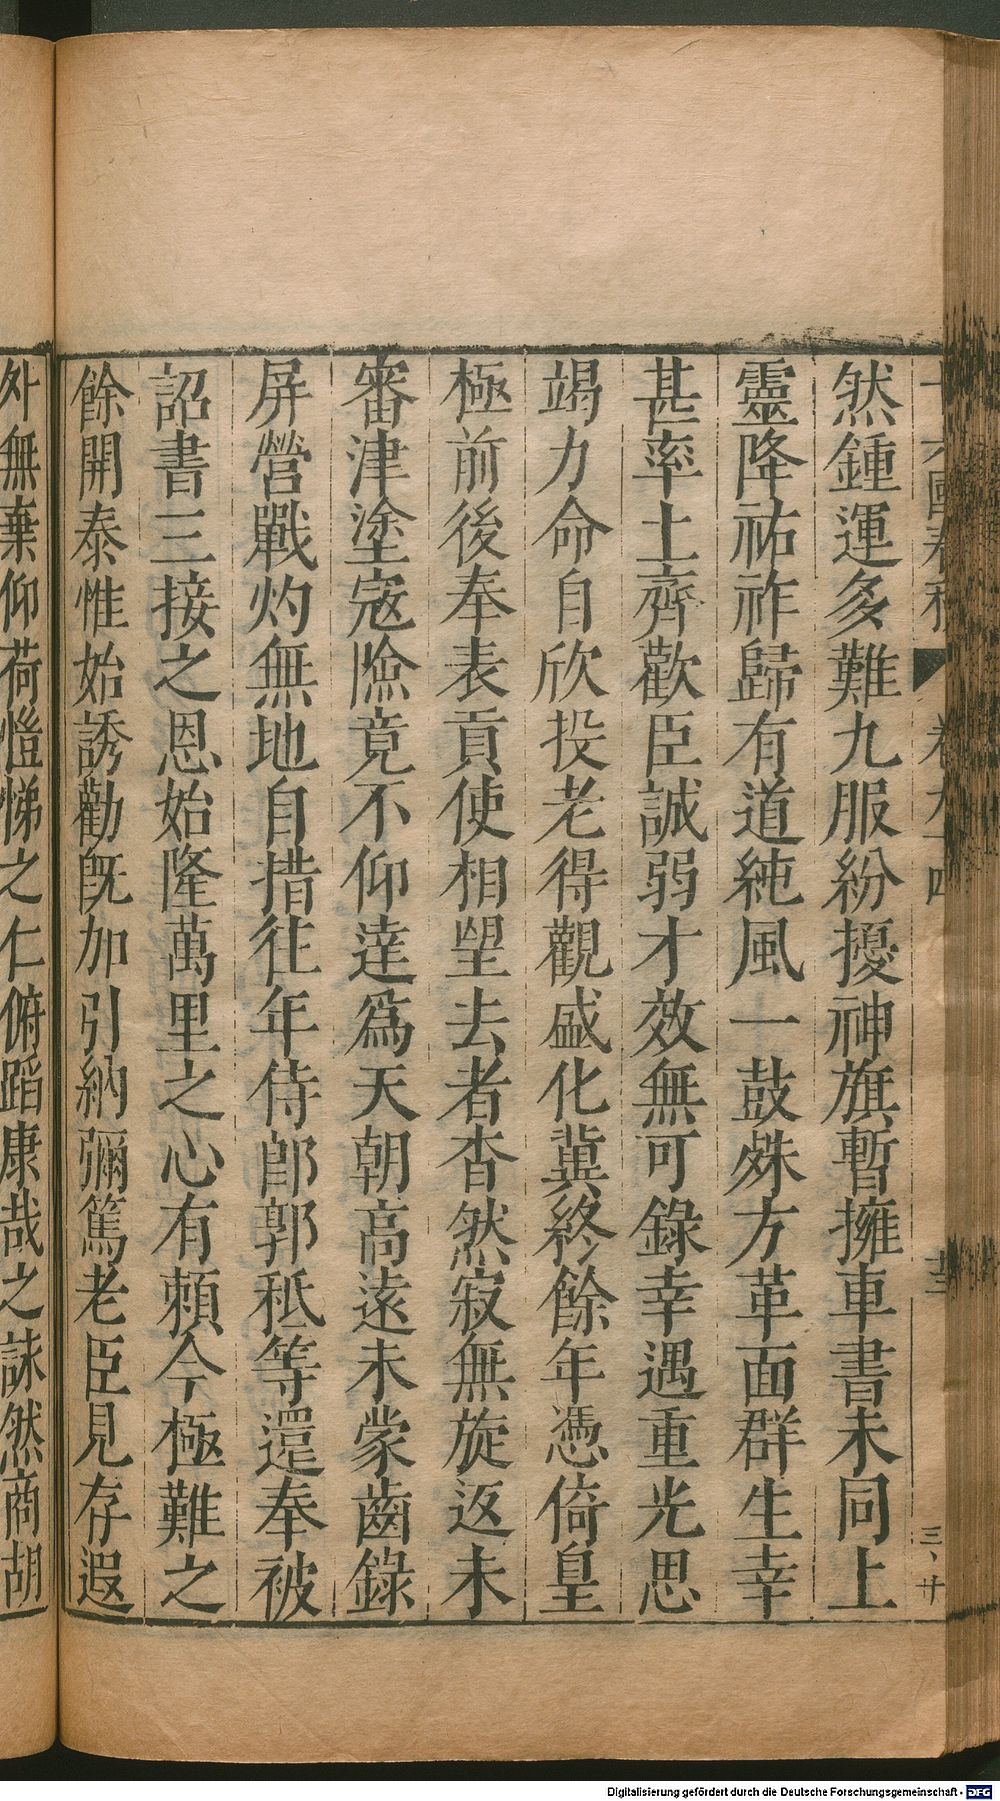 然鍾運多難九服紛擾神旗暫擁車書未同上
靈降祐祚歸有道純風一鼓殊方革面群生幸
甚率土齊歡臣誠弱才效無可錄幸遇重光思
竭力命自欣投老得觀盛化冀終餘年憑倚皇
極前後奉表貢使相望去者杳然寂無旋返未
審津塗寇險竟不仰達爲天朝高遠未蒙齒錄
屏營戰灼無地自措往年侍郎郭秪等還奉被
詔書三接之恩始隆萬里之心有賴今極難之
餘開泰惟始誘勸旣加引納彌篤老臣見存遐
外無棄仰荷愷悌之仁俯蹈康哉之詠然商胡
Digitalisierung gefördert durch die Deutsche Forschungsgemeinschaft - DFG